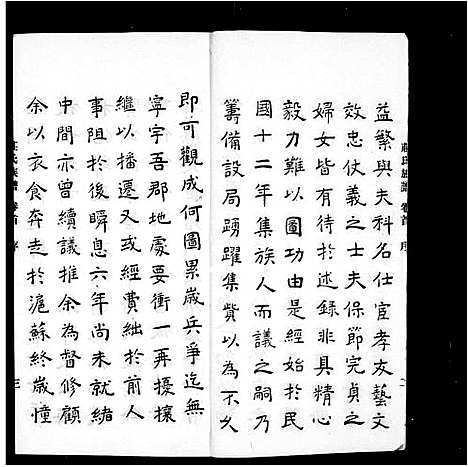 莊氏族譜 卷首 序
益繁與夫科名仕宦孝友藝文
效忠仗義之士夫保節完貞之
婦女皆有待於述録非具精心
毅力難以圖功由是經始於民
國十二年集族人而議之嗣乃
籌備設局踴躍集貲以為不久
即可觀成何圖累歲兵爭迄無
寧宇吾郡地處要衝一再擾攘
繼以播遷又以經費絀於前人
事阻於後瞬息六年尚未就緒
中間亦曾續議推余為督修顧
余以衣食奔走於滬蘇終歲憧
莊氏族譜 卷首 序
三